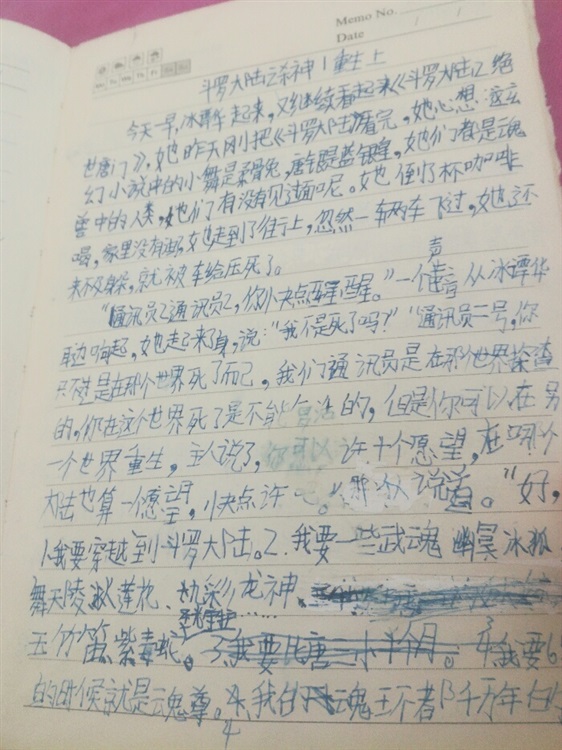 Memo No.
Date
斗罗大陆之杀神 1 重生上
今天一早,冰谭华起来,又继续看起来《斗罗大陆之绝
世唐门》,她昨天刚把《斗罗大陆》看完,她心想:这玄
幻小说中的小舞是柔骨兔,唐银是蓝银皇,她们都是魂
兽中的人类,她们有没有见过面呢。她倒了杯咖啡
喝,家里没有她走到了街上,忽然一辆车飞过,她还
来不及躲,就被车给压死了。
声
“通讯员2通讯员2,你小快点醒醒。”一个声音从冰谭华
耳边响起,她走起来了身,说:“我不是死了吗?”“通讯员二号,你
只不过是在那个世界死了而已,我们通讯员是在那个世界探查
的,你在这个世界死了是不能复活的,但是你可以在另
一个世界重生,主人说了,你可以许十个愿望,在哪个
大陆也算一个愿望,小快点许吧。”那人说道。“好,
1、我要穿越到斗罗大陆。2、我要一些武魂 幽冥冰狐
舞天陵 莲花、七彩龙神、
笛紫毒蛇。3、我要比唐三小十个月。我要6
的时候就是魂尊。4、我的魂王不者β千万年白的